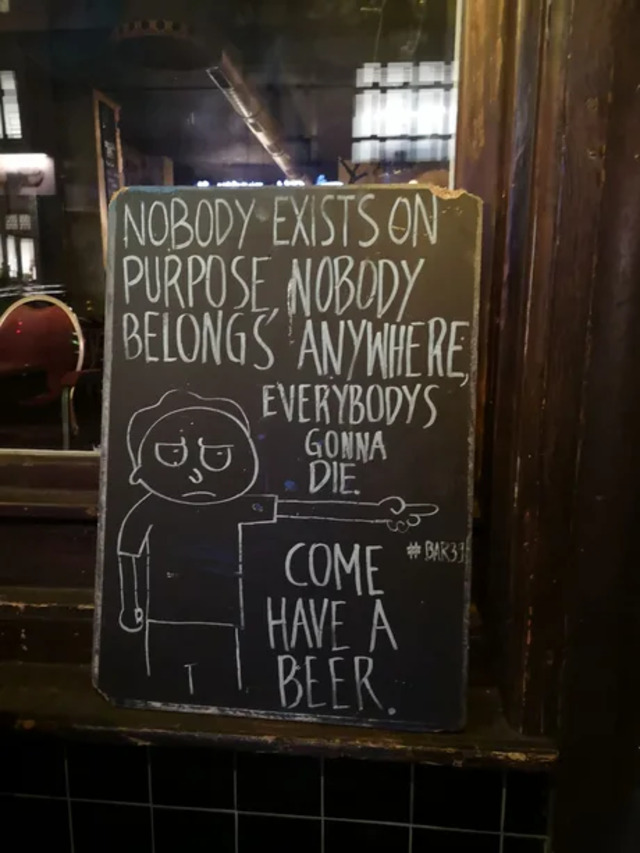 NOBODY EXISTS ON
PURPOSE, NOBODY
BELONGS ANYWHERE,
EVERYBODYS
GONNA
DIE.
# BAR39
COME
HAVE A
BEER.